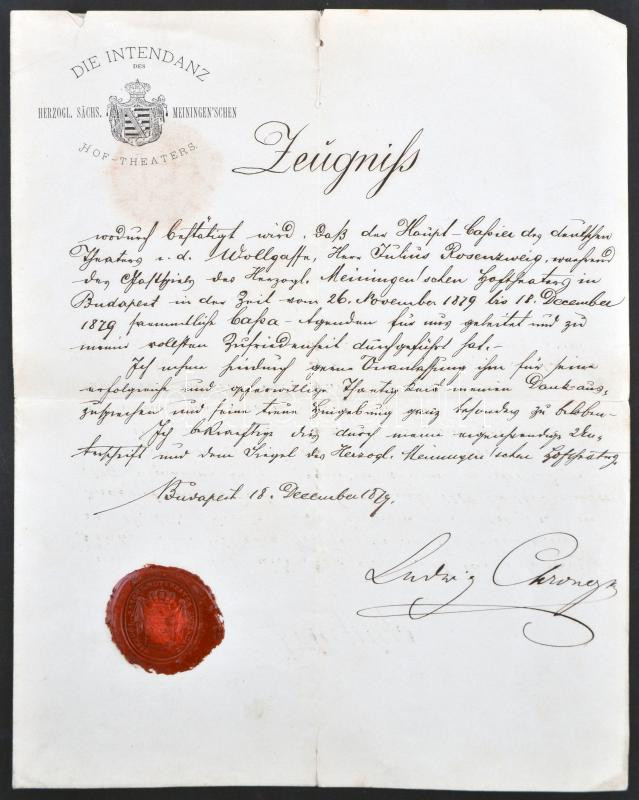 DIE INTENDANZ
DES
HERZOGL. SÄCHS. MEININGEN'SCHEN
HOF-THEATERS.
Zeugniss
wodurch bestätigt wird, daß der Haupt-Cassier des deutschen
Theaters i. d. Wollgasse, Herr Julius Rosenzweig, während
des Gastspiels des Herzogl. Meiningen'schen Hoftheaters in
Budapest in der Zeit vom 26. November 1879 bis 18. December
1879 sammtliche Cassa-Agenden für uns geleitet und zu
meiner vollsten Zufriedenheit durchgeführt hat.-
Ich nehme hiedurch gerne Veranlassung ihm für seine
erfolgreiche und opferwillige Thätigkeit meinen Dank aus-
zusprechen und seine treue Hingebung ganz besonders zu beloben.-
Ich bekräftige dies durch meine eigenhändige Un-
terschrift und dem Siegel des Herzogl. Meiningen'schen Hoftheaters.
Budapest 18. December 1879.
Ludwig Chronegk